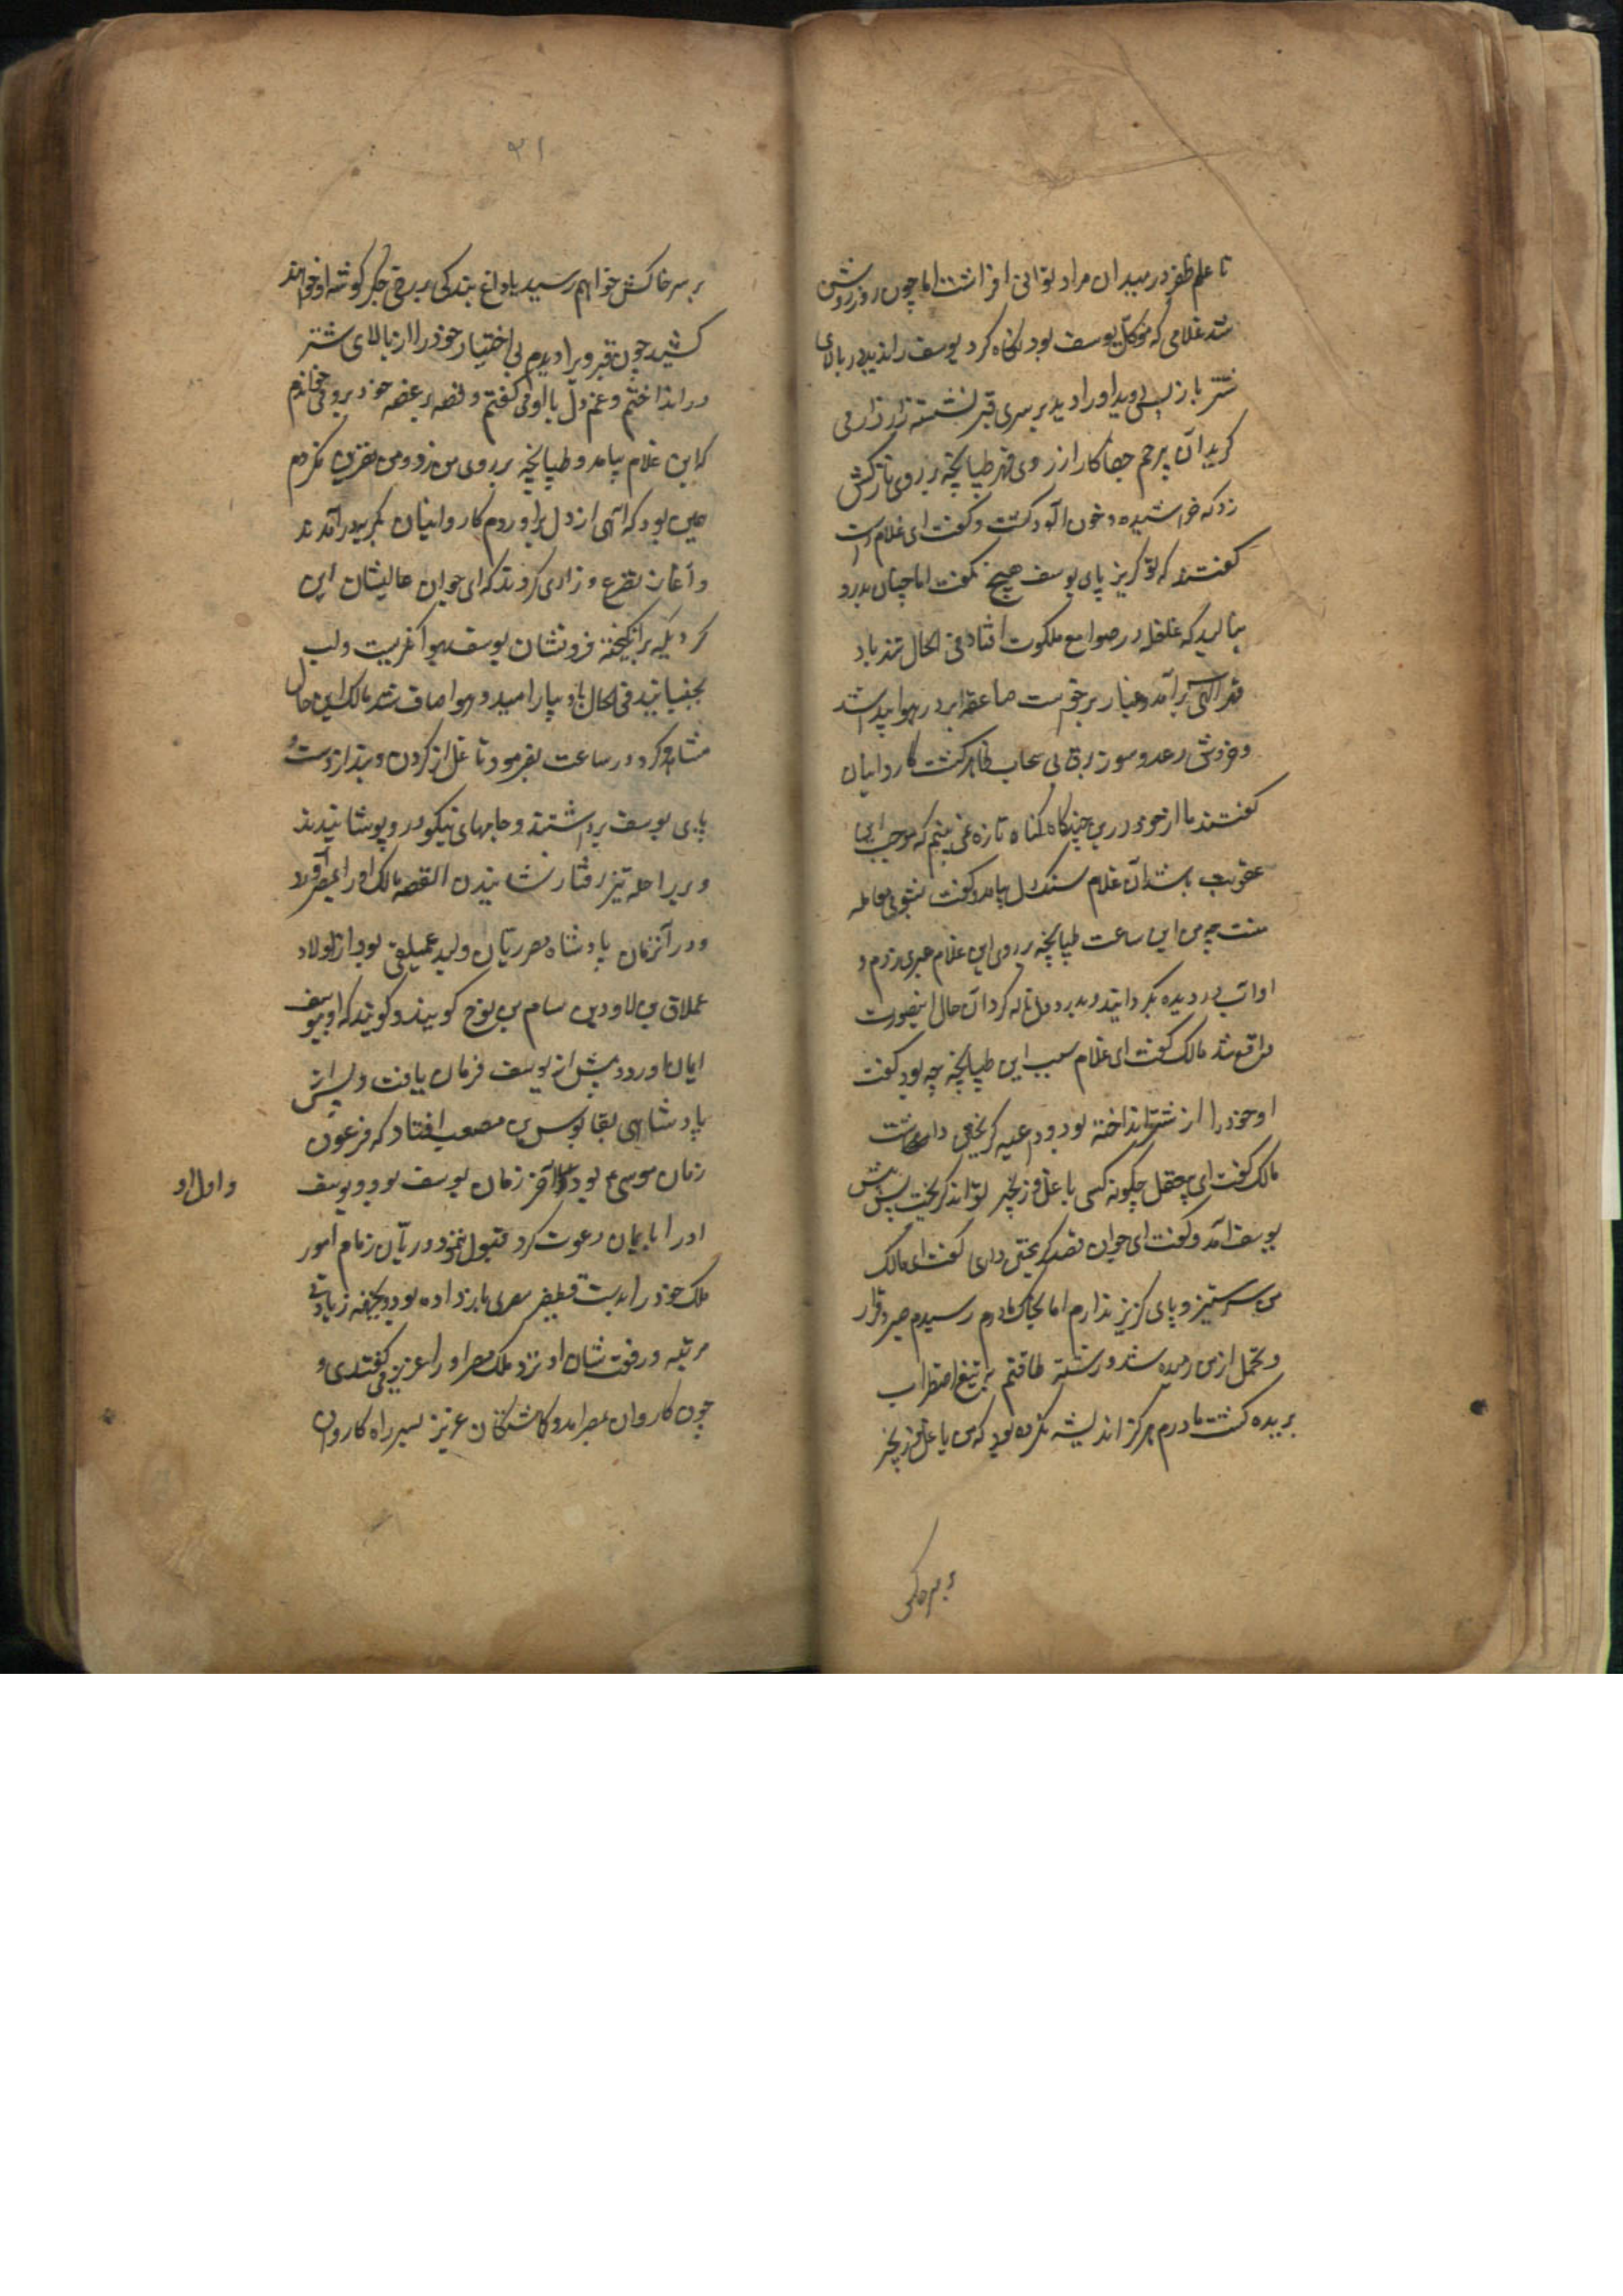 تا علم ظفر در میدان مراد توانی افراشت اما چون روز روشن
شد غلامی که موکل یوسف بود نگاه کرد یوسف را ندید در بالای
شتر باز پس دوید او را دید بر سری قبر نشسته زار زار می
کرید آن بی رحم جفاکار از روی قهر طپانچه بر روی نازکش
زد که خراشیده و خون آلود کشت و کفت ای غلام راست
کفتند که تو کریز پای یوسف هیچ نکفت اما چنان بدرد
بنالید که غلغله در صوامع ملکوت افتاد فی الحال تند باد
قهر الهی برآمد و غبار برخواست صاعقه ابر در هوا پیدا شد
و خروش رعد و سوز برق بی سحاب ظاهر کشت کاروانیان
کفتند ما از خود درین چندکاه کناه تازه نمی بینم که موجب این
عقوبت باشد آن غلام سنکدل بیامد و کفت بشومی معامله
منست چه من این ساعت طپانچه بر روی این غلام عبری زدم و
او آب در دیده بکردانید و بدرد دل ناله کرد آن حال اینصورت
واقع شد مالک کفت ای غلام سبب این طپانچه چه بود کفت
او خود را از شتر انداخته بود و داعیه کریختن داشت
مالک کفت ای بی عقل چکونه کسی با غل و زنجیر تواند کریخت پس پیش
یوسف آمد و کفت ای جوان قصد کریختن داری کفت ای مالک
من سر ستیز و پای کریز ندارم اما بخاک مادرم رسیدم صبر و قرار
و تحمل از من رمیده شد و رشته طاقتم به تیغ اضطراب
بریده کشت مادرم هرکز اندیشه نکرده بود که من با غل و زنجیر
بر سر خاکش
۲۱
بر سر خاکش خواهم رسید یا داغ بندکی بر رخ جکر کوشه او خواهند
کشید چون قبر ویرا دیدم بی اختیار خود را از بالای شتر
در انداختم و غم دل با او می کفتم و قصه پر غصه خود بر وی می خواندم
که این غلام بیامد و طپانچه بر روی من زد و من نفرین نکردم
همین بود که آهی از دل برآوردم کاروانیان بکریه درآمدند
و آغاز تضرع و زاری کردند که ای جوان عالیشان این
کرد یکه برانکیخته فرونشان یوسف بهوا نکریست و لب
بجنبانید فی الحال باد بیارامید و هوا صاف شد مالک این حال
مشاهده کرد در ساعت بفرمود تا غل از کردن و بند از دست و
پای یوسف برداشتند و جامهای نیکو در و پوشانیدند
و بر راحله تیز رفتار نشانیدن القصه مالک او را بمصر آورد
و در آنزمان پادشاه مصر ریان ولید عملیقی بود از اولاد
عملاق بن لاود بن سام بن نوح کویند و کویند که او بیوسف
ایمان آورد و پیش از یوسف فرمان یافت و پس از
پادشاهی بقابوس بن مصعب افتاد که فرعون
زمان موسی ع بود و آخر زمان یوسف بود و یوسف
و اول او
او را بایمان دعوت کرد قبول ننمود و ریان زمام امور
ملک خود را بدست قطیفر مصری باز داده بود و بجهة زیادتی
مرتبه و رفعت شان او نزد ملک مصر او را عزیز می کفتندی و
چون کاروان بمصر آمد و کماشتکان عزیز بسر راه کاروان